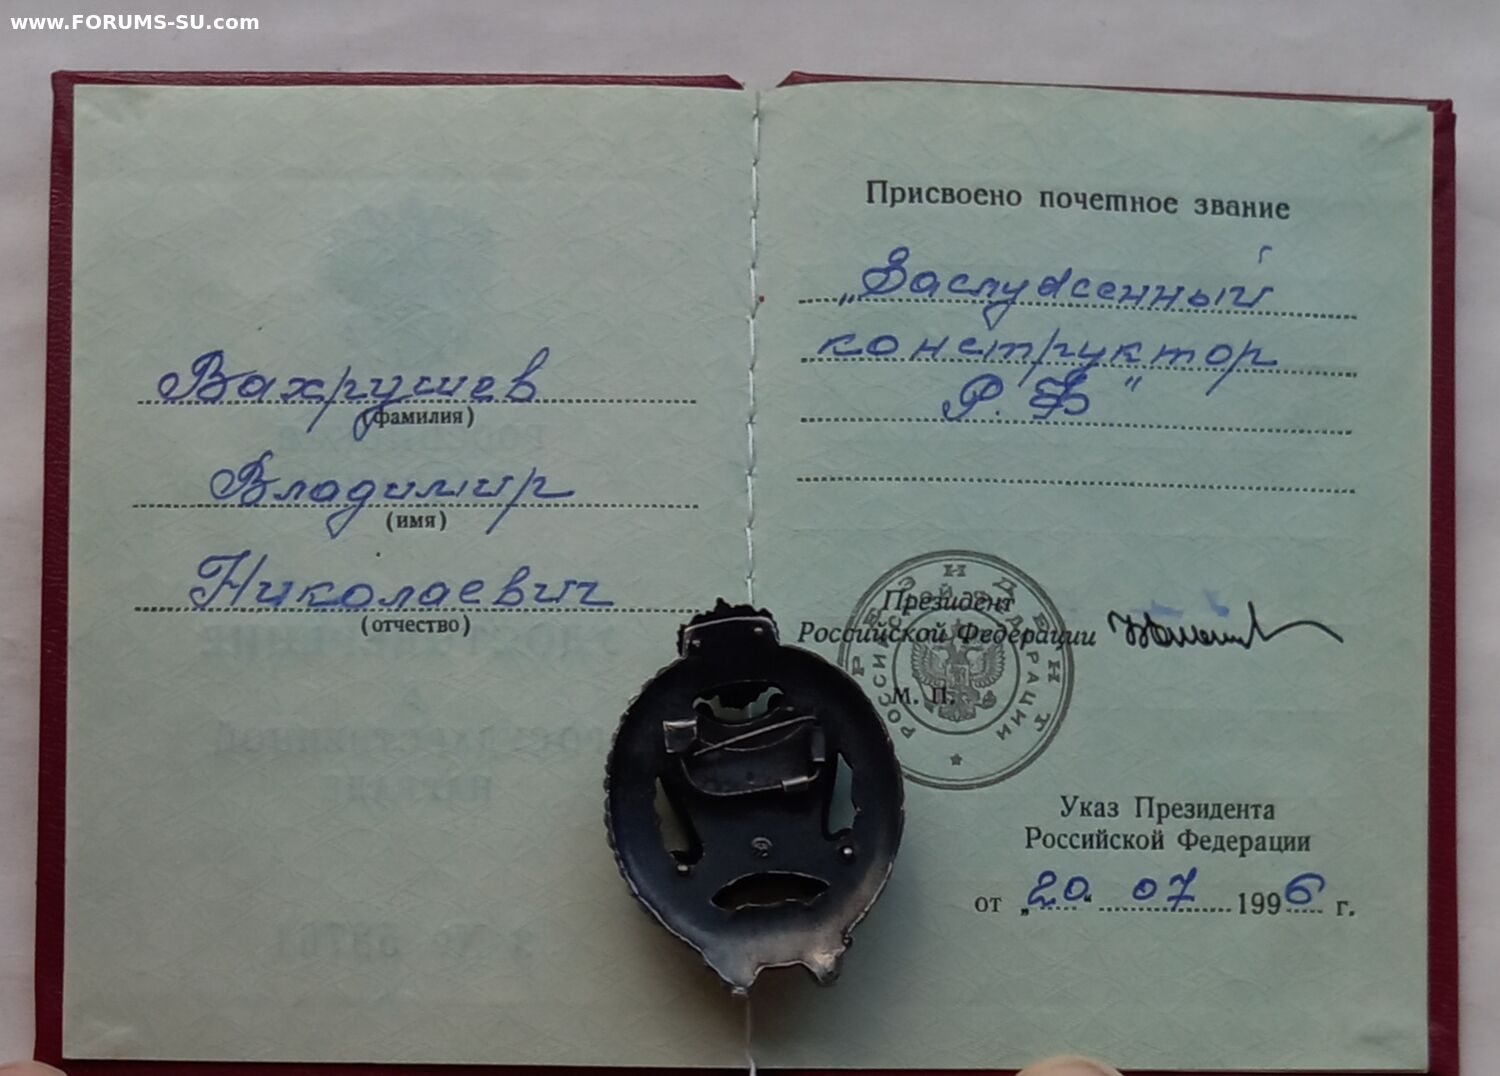 www.FORUMS-SU.com
Вахрушев
(фамилия)
Владимир
(имя)
Николаевич
(отчество)
Присвоено почетное звание
„Заслуженный
конструктор
Р.Ф"
Президент
Российской Федерации
М. П.
ПРЕЗИДЕНТ
РОССИЙСКОЙ ФЕДЕРАЦИИ
Указ Президента
Российской Федерации
от „20" 07 1996 г.